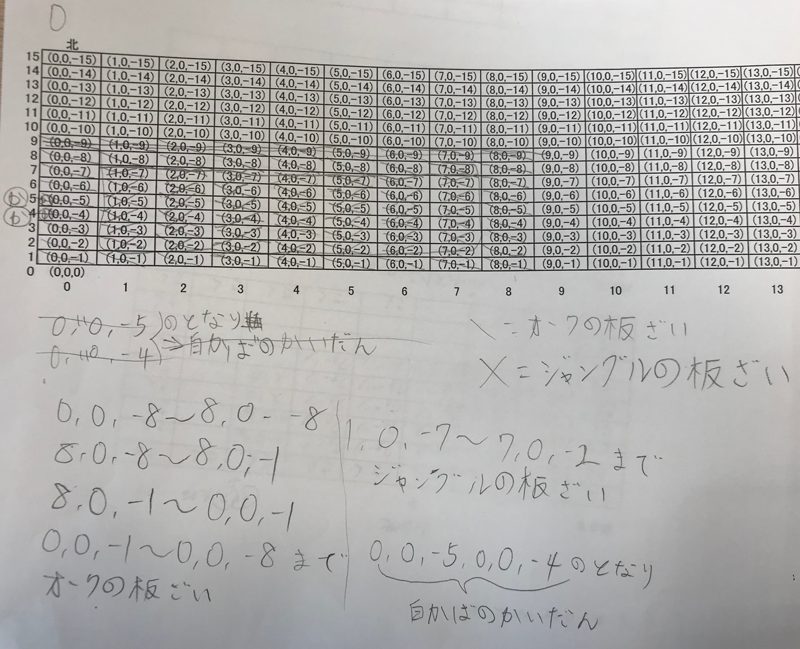 0
北
15 (0,0,-15) (1,0,-15) (2,0,-15) (3,0,-15) (4,0,-15) (5,0,-15) (6,0,-15) (7,0,-15) (8,0,-15) (9,0,-15) (10,0,-15) (11,0,-15) (12,0,-15) (13,0,-15)
14 (0,0,-14) (1,0,-14) (2,0,-14) (3,0,-14) (4,0,-14) (5,0,-14) (6,0,-14) (7,0,-14) (8,0,-14) (9,0,-14) (10,0,-14) (11,0,-14) (12,0,-14) (13,0,-14)
13 (0,0,-13) (1,0,-13) (2,0,-13) (3,0,-13) (4,0,-13) (5,0,-13) (6,0,-13) (7,0,-13) (8,0,-13) (9,0,-13) (10,0,-13) (11,0,-13) (12,0,-13) (13,0,-13)
12 (0,0,-12) (1,0,-12) (2,0,-12) (3,0,-12) (4,0,-12) (5,0,-12) (6,0,-12) (7,0,-12) (8,0,-12) (9,0,-12) (10,0,-12) (11,0,-12) (12,0,-12) (13,0,-12)
11 (0,0,-11) (1,0,-11) (2,0,-11) (3,0,-11) (4,0,-11) (5,0,-11) (6,0,-11) (7,0,-11) (8,0,-11) (9,0,-11) (10,0,-11) (11,0,-11) (12,0,-11) (13,0,-11)
10 (0,0,-10) (1,0,-10) (2,0,-10) (3,0,-10) (4,0,-10) (5,0,-10) (6,0,-10) (7,0,-10) (8,0,-10) (9,0,-10) (10,0,-10) (11,0,-10) (12,0,-10) (13,0,-10)
9 (0,0,-9) (1,0,-9) (2,0,-9) (3,0,-9) (4,0,-9) (5,0,-9) (6,0,-9) (7,0,-9) (8,0,-9) (9,0,-9) (10,0,-9) (11,0,-9) (12,0,-9) (13,0,-9)
8 (0,0,-8) (1,0,-8) (2,0,-8) (3,0,-8) (4,0,-8) (5,0,-8) (6,0,-8) (7,0,-8) (8,0,-8) (9,0,-8) (10,0,-8) (11,0,-8) (12,0,-8) (13,0,-8)
7 (0,0,-7) (1,0,-7) (2,0,-7) (3,0,-7) (4,0,-7) (5,0,-7) (6,0,-7) (7,0,-7) (8,0,-7) (9,0,-7) (10,0,-7) (11,0,-7) (12,0,-7) (13,0,-7)
6 (0,0,-6) (1,0,-6) (2,0,-6) (3,0,-6) (4,0,-6) (5,0,-6) (6,0,-6) (7,0,-6) (8,0,-6) (9,0,-6) (10,0,-6) (11,0,-6) (12,0,-6) (13,0,-6)
か 5 (0,0,-5) (1,0,-5) (2,0,-5) (3,0,-5) (4,0,-5) (5,0,-5) (6,0,-5) (7,0,-5) (8,0,-5) (9,0,-5) (10,0,-5) (11,0,-5) (12,0,-5) (13,0,-5)
か 4 (0,0,-4) (1,0,-4) (2,0,-4) (3,0,-4) (4,0,-4) (5,0,-4) (6,0,-4) (7,0,-4) (8,0,-4) (9,0,-4) (10,0,-4) (11,0,-4) (12,0,-4) (13,0,-4)
3 (0,0,-3) (1,0,-3) (2,0,-3) (3,0,-3) (4,0,-3) (5,0,-3) (6,0,-3) (7,0,-3) (8,0,-3) (9,0,-3) (10,0,-3) (11,0,-3) (12,0,-3) (13,0,-3)
2 (0,0,-2) (1,0,-2) (2,0,-2) (3,0,-2) (4,0,-2) (5,0,-2) (6,0,-2) (7,0,-2) (8,0,-2) (9,0,-2) (10,0,-2) (11,0,-2) (12,0,-2) (13,0,-2)
1 (0,0,-1) (1,0,-1) (2,0,-1) (3,0,-1) (4,0,-1) (5,0,-1) (6,0,-1) (7,0,-1) (8,0,-1) (9,0,-1) (10,0,-1) (11,0,-1) (12,0,-1) (13,0,-1)
0 (0,0,0)
0 1 2 3 4 5 6 7 8 9 10 11 12 13
0,0,-5 のとなり
0,0,-4 ⇒白かばのかいだん
\=オークの板ざい
X=ジャングルの板ざい
0,0,-8〜8,0--8
8,0,-8〜8,0,-1
8,0,-1〜0,0,-1
0,0,-1〜0,0,-8まで
オークの板ざい
1,0,-7〜7,0,-2まで
ジャングルの板ざい
0,0,-5,0,0,-4のとなり
白かばのかいだん